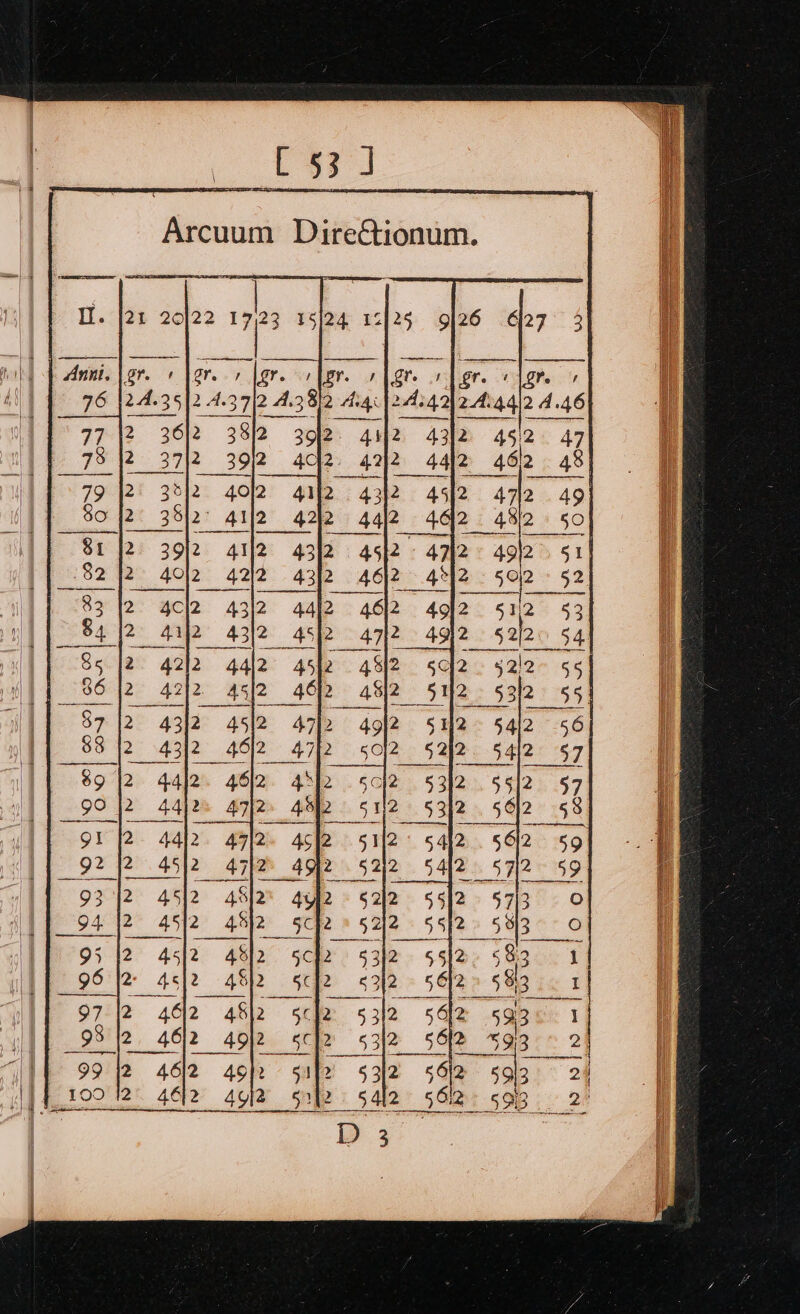 [ 53 ]
Arcuum Directionum.
II. |21 20|22 17|23 15|24 12|25 9|26 6|27 3
Anni. |gr. ′|gr. ′|gr. ′|gr. ′|gr. ′|gr. ′|gr. ′
76 |2A.35|2A.37|2A.38|2A.40|2A.42|2A.44|2A.46
77 |2 36|2 38|2 39|2 41|2 43|2 45|2 47
78 |2 37|2 39|2 40|2 42|2 44|2 46|2 48
79 |2 38|2 40|2 41|2 43|2 45|2 47|2 49
80 |2 38|2 41|2 42|2 44|2 46|2 48|2 50
81 |2 39|2 41|2 43|2 45|2 47|2 49|2 51
82 |2 40|2 42|2 43|2 46|2 48|2 50|2 52
83 |2 40|2 43|2 44|2 46|2 49|2 51|2 53
84 |2 41|2 43|2 45|2 47|2 49|2 52|2 54
85 |2 42|2 44|2 45|2 48|2 50|2 52|2 55
86 |2 42|2 45|2 46|2 48|2 51|2 53|2 55
87 |2 43|2 45|2 47|2 49|2 51|2 54|2 56
88 |2 43|2 46|2 47|2 50|2 52|2 54|2 57
89 |2 44|2 46|2 48|2 50|2 53|2 55|2 57
90 |2 44|2 47|2 48|2 51|2 53|2 56|2 58
91 |2 44|2 47|2 49|2 51|2 54|2 56|2 59
92 |2 45|2 47|2 49|2 52|2 54|2 57|2 59
93 |2 45|2 48|2 49|2 52|2 55|2 57|3 0
94 |2 45|2 48|2 50|2 52|2 55|2 58|3 0
95 |2 45|2 48|2 50|2 53|2 55|2 58|3 1
96 |2 45|2 48|2 50|2 53|2 56|2 58|3 1
97 |2 46|2 48|2 50|2 53|2 56|2 59|3 1
98 |2 46|2 49|2 50|2 53|2 56|2 59|3 2
99 |2 46|2 49|2 51|2 53|2 56|2 59|3 2
100 |2 46|2 49|2 51|2 54|2 56|2 59|3 2
D 3